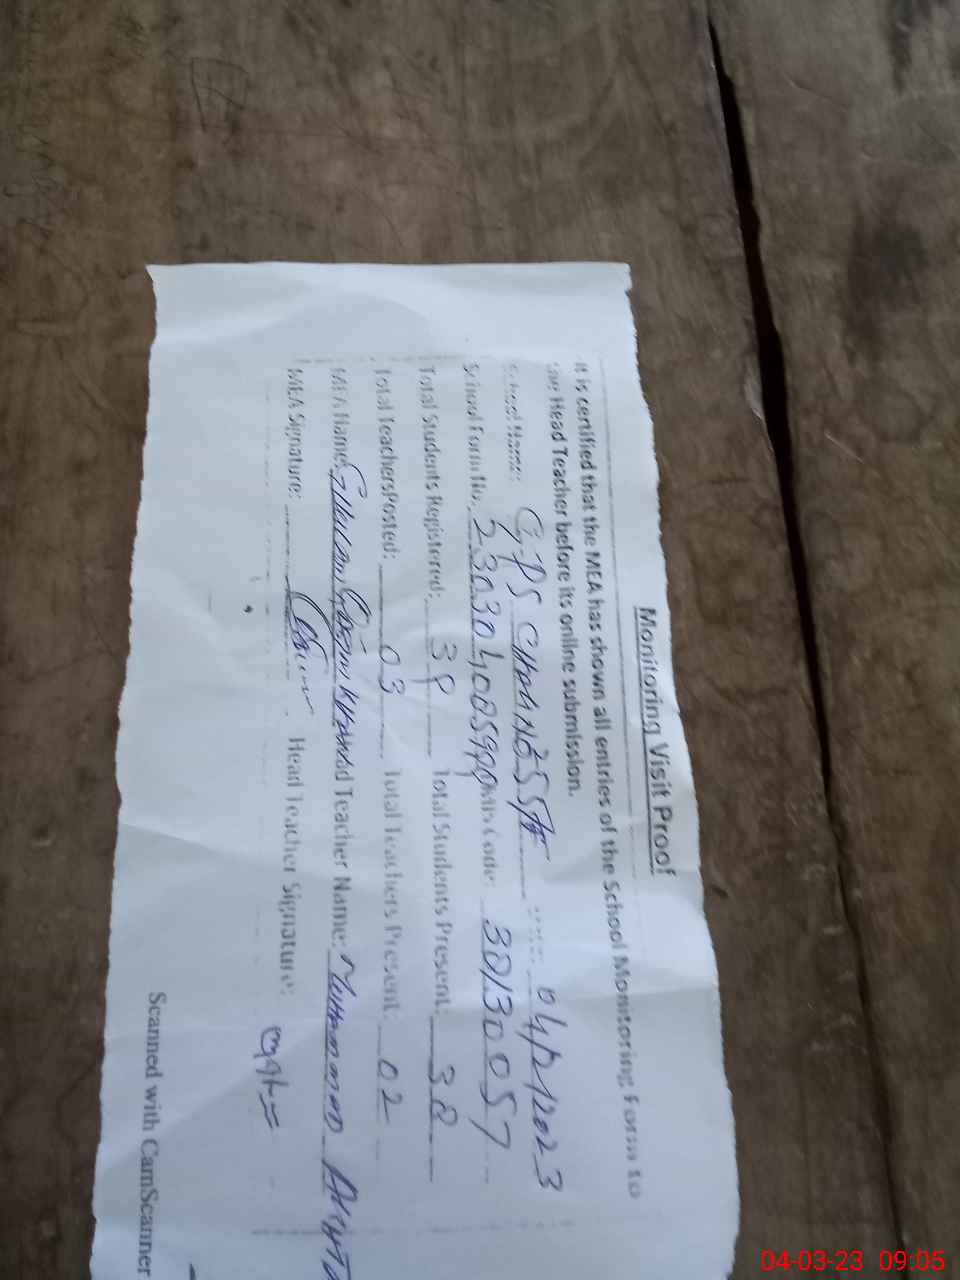 Monitoring Visit Proof
It is certified that the MEA has shown all entries of the School Monitoring Form to
the Head Teacher before its online submission.
School Name: GPS
School Form No. MIS Code: 30130057
Total Students Registered: 39 Total Students Present: 38
Total Teachers Posted: 03 Total Teachers Present: 02
MEA Name: Head Teacher Name: Muhammad
MEA Signature: Head Teacher Signature:
Scanned with CamScanner
04-03-23 09:05